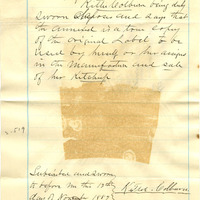 Killie Colburn being duly
sworn deposes and says that
the annexed is a true Copy
of the original Label to be
used by herself or her assigns
in the Manufacture and sale
of her Ketchup
Subscribed and sworn
to before me this 17th
day of November 1887
Killie Colburn